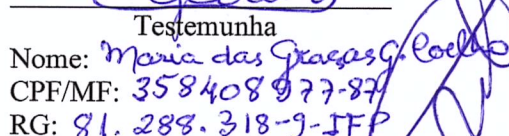 Testemunha
Nome: Maria das Graças G. Coelho
CPF/MF: 358408977-87
RG: 81.288.318-9-IFP